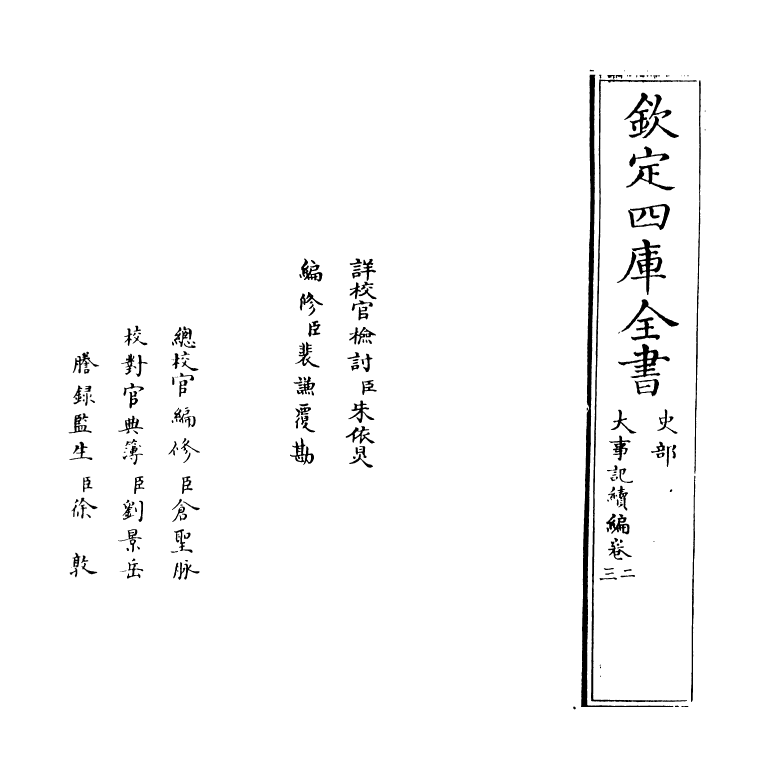 欽定四庫全書
史部
大事記續編卷二三
詳校官檢討臣朱依炅
編修臣裴謙覆勘
總校官編修臣倉聖脉
校對官典簿臣劉景岳
謄録監生臣徐敦